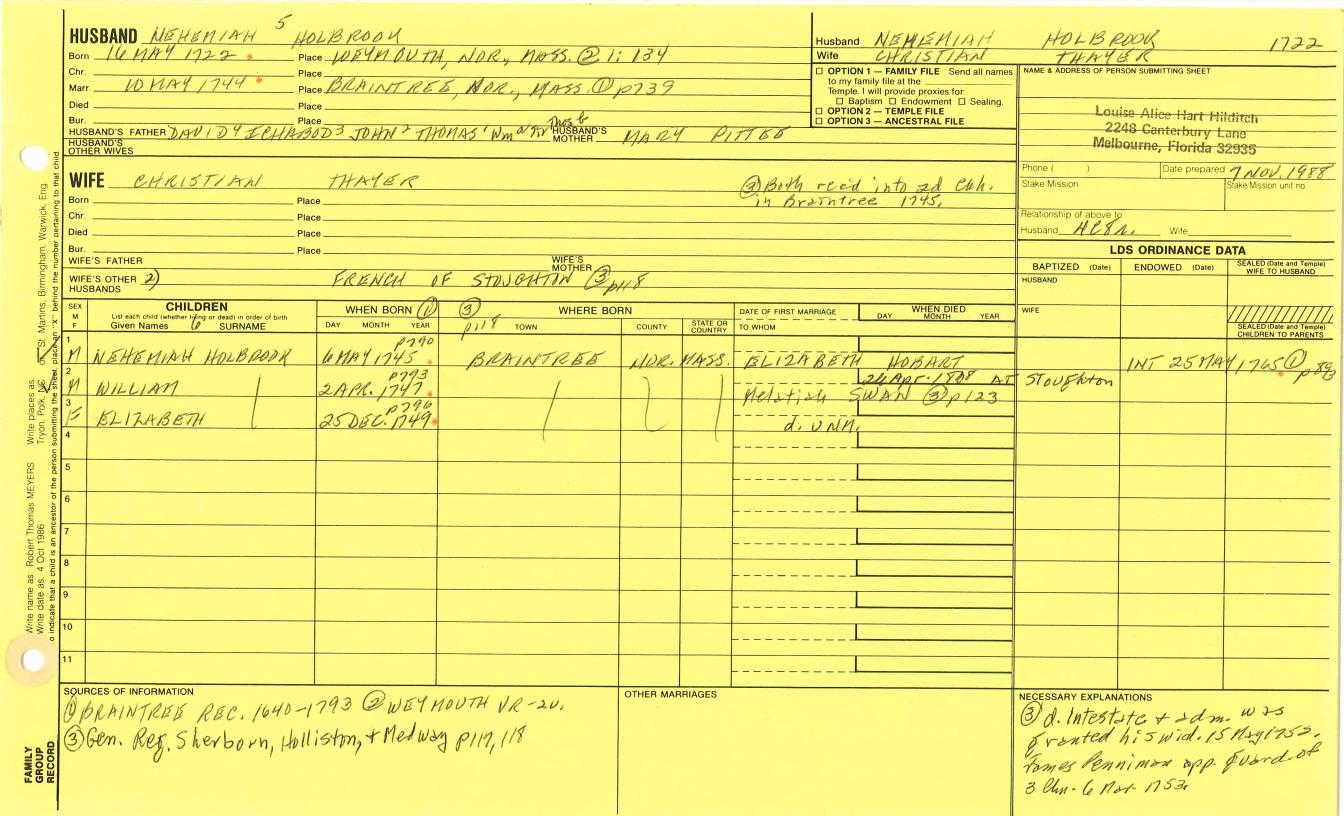 HUSBAND NEHEMIAH 5 HOLBROOK
Born 16 MAY 1722 Place WEYMOUTH, NOR., MASS. ② 1: 134
Chr. Place
Marr. 10 MAY 1744 Place BRAINTREE, NOR., MASS. ① p739
Died Place
Bur. Place
HUSBAND'S FATHER DAVID 4 ICHABOD 3 JOHN 2 THOMAS 1 Wm HUSBAND'S MOTHER MARY PITTEE
HUSBAND'S OTHER WIVES
Husband NEHEMIAH HOLBROOK 1722
Wife CHRISTIAN THAYER
☐ OPTION 1 — FAMILY FILE Send all names
to my family file at the
Temple. I will provide proxies for
☐ Baptism ☐ Endowment ☐ Sealing.
☐ OPTION 2 — TEMPLE FILE
☐ OPTION 3 — ANCESTRAL FILE
NAME & ADDRESS OF PERSON SUBMITTING SHEET
Louise Alice Hart Hilditch
2248 Canterbury Lane
Melbourne, Florida 32935
Phone ( ) Date prepared 7 NOV. 1988
Stake Mission Stake Mission unit no.
Relationship of above to
Husband Wife
WIFE CHRISTIAN THAYER
③ Both rec'd into 2d Chh.
in Braintree 1745.
Born Place
Chr. Place
Died Place
Bur. Place
WIFE'S FATHER WIFE'S MOTHER
WIFE'S OTHER HUSBANDS 2) FRENCH OF STOUGHTON ③ p118
LDS ORDINANCE DATA
BAPTIZED (Date) ENDOWED (Date) SEALED (Date and Temple) WIFE TO HUSBAND
HUSBAND
WIFE
SEALED (Date and Temple) CHILDREN TO PARENTS
SEX M F CHILDREN List each child (whether living or dead) in order of birth Given Names SURNAME
WHEN BORN ① DAY MONTH YEAR
③ p118 WHERE BORN TOWN COUNTY STATE OR COUNTRY
DATE OF FIRST MARRIAGE TO WHOM
WHEN DIED DAY MONTH YEAR
1 M NEHEMIAH HOLBROOK p790 6 MAY 1745 BRAINTREE NOR. MASS. ELIZABETH HOBART INT 25 MAY 1765 ①
2 M WILLIAM p793 2 APR. 1747 24 Apr. 1808 AT Stoughton
SWAN ③ p123
3 F ELIZABETH p796 25 DEC. 1749 d. UNM.
4
5
6
7
8
9
10
11
SOURCES OF INFORMATION
① BRAINTREE REC. 1640-1793 ② WEYMOUTH VR-
③ Gen. Reg. Sherborn, Holliston, + Medway p117, 118
OTHER MARRIAGES
NECESSARY EXPLANATIONS
③ d. Intestate + adm. was
granted his wid. 15 May 1752.
James Penniman app. guard. of
3 Chn. 6 Mar. 1753.
Write name as: Robert Thomas MEYERS Write places as: Tryon, Polk, NC St. Martins, Birmingham, Warwick, Eng.
Write date as: 4 Oct 1986
To indicate that a child is an ancestor of the person submitting the sheet, place an "X" behind the number pertaining to that child.
FAMILY GROUP RECORD